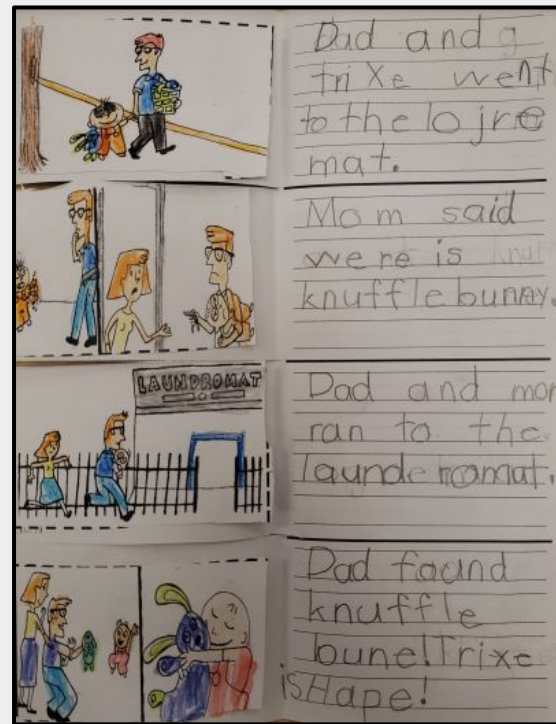 Dad and
trixe went
to the lojre
mat.
Mom said
were is
knuffle bunny.
LAUNDROMAT
Dad and mom
ran to the
launderomat.
Dad found
knuffle
bune! Trixe
is Hape!